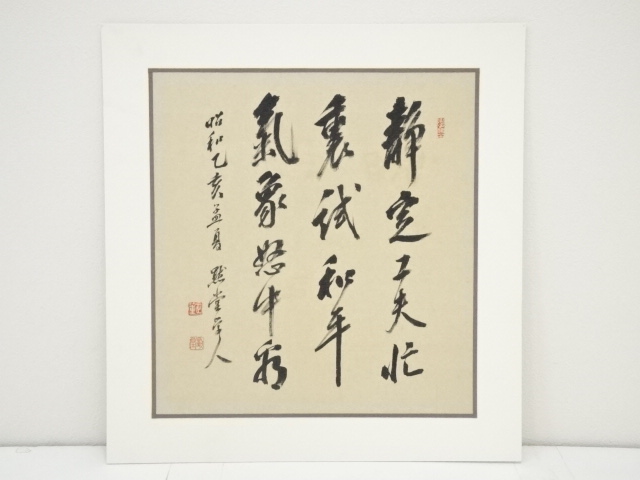 静定工夫忙
裏試和平
氣象怒中看
昭和乙亥孟夏 默堂学人